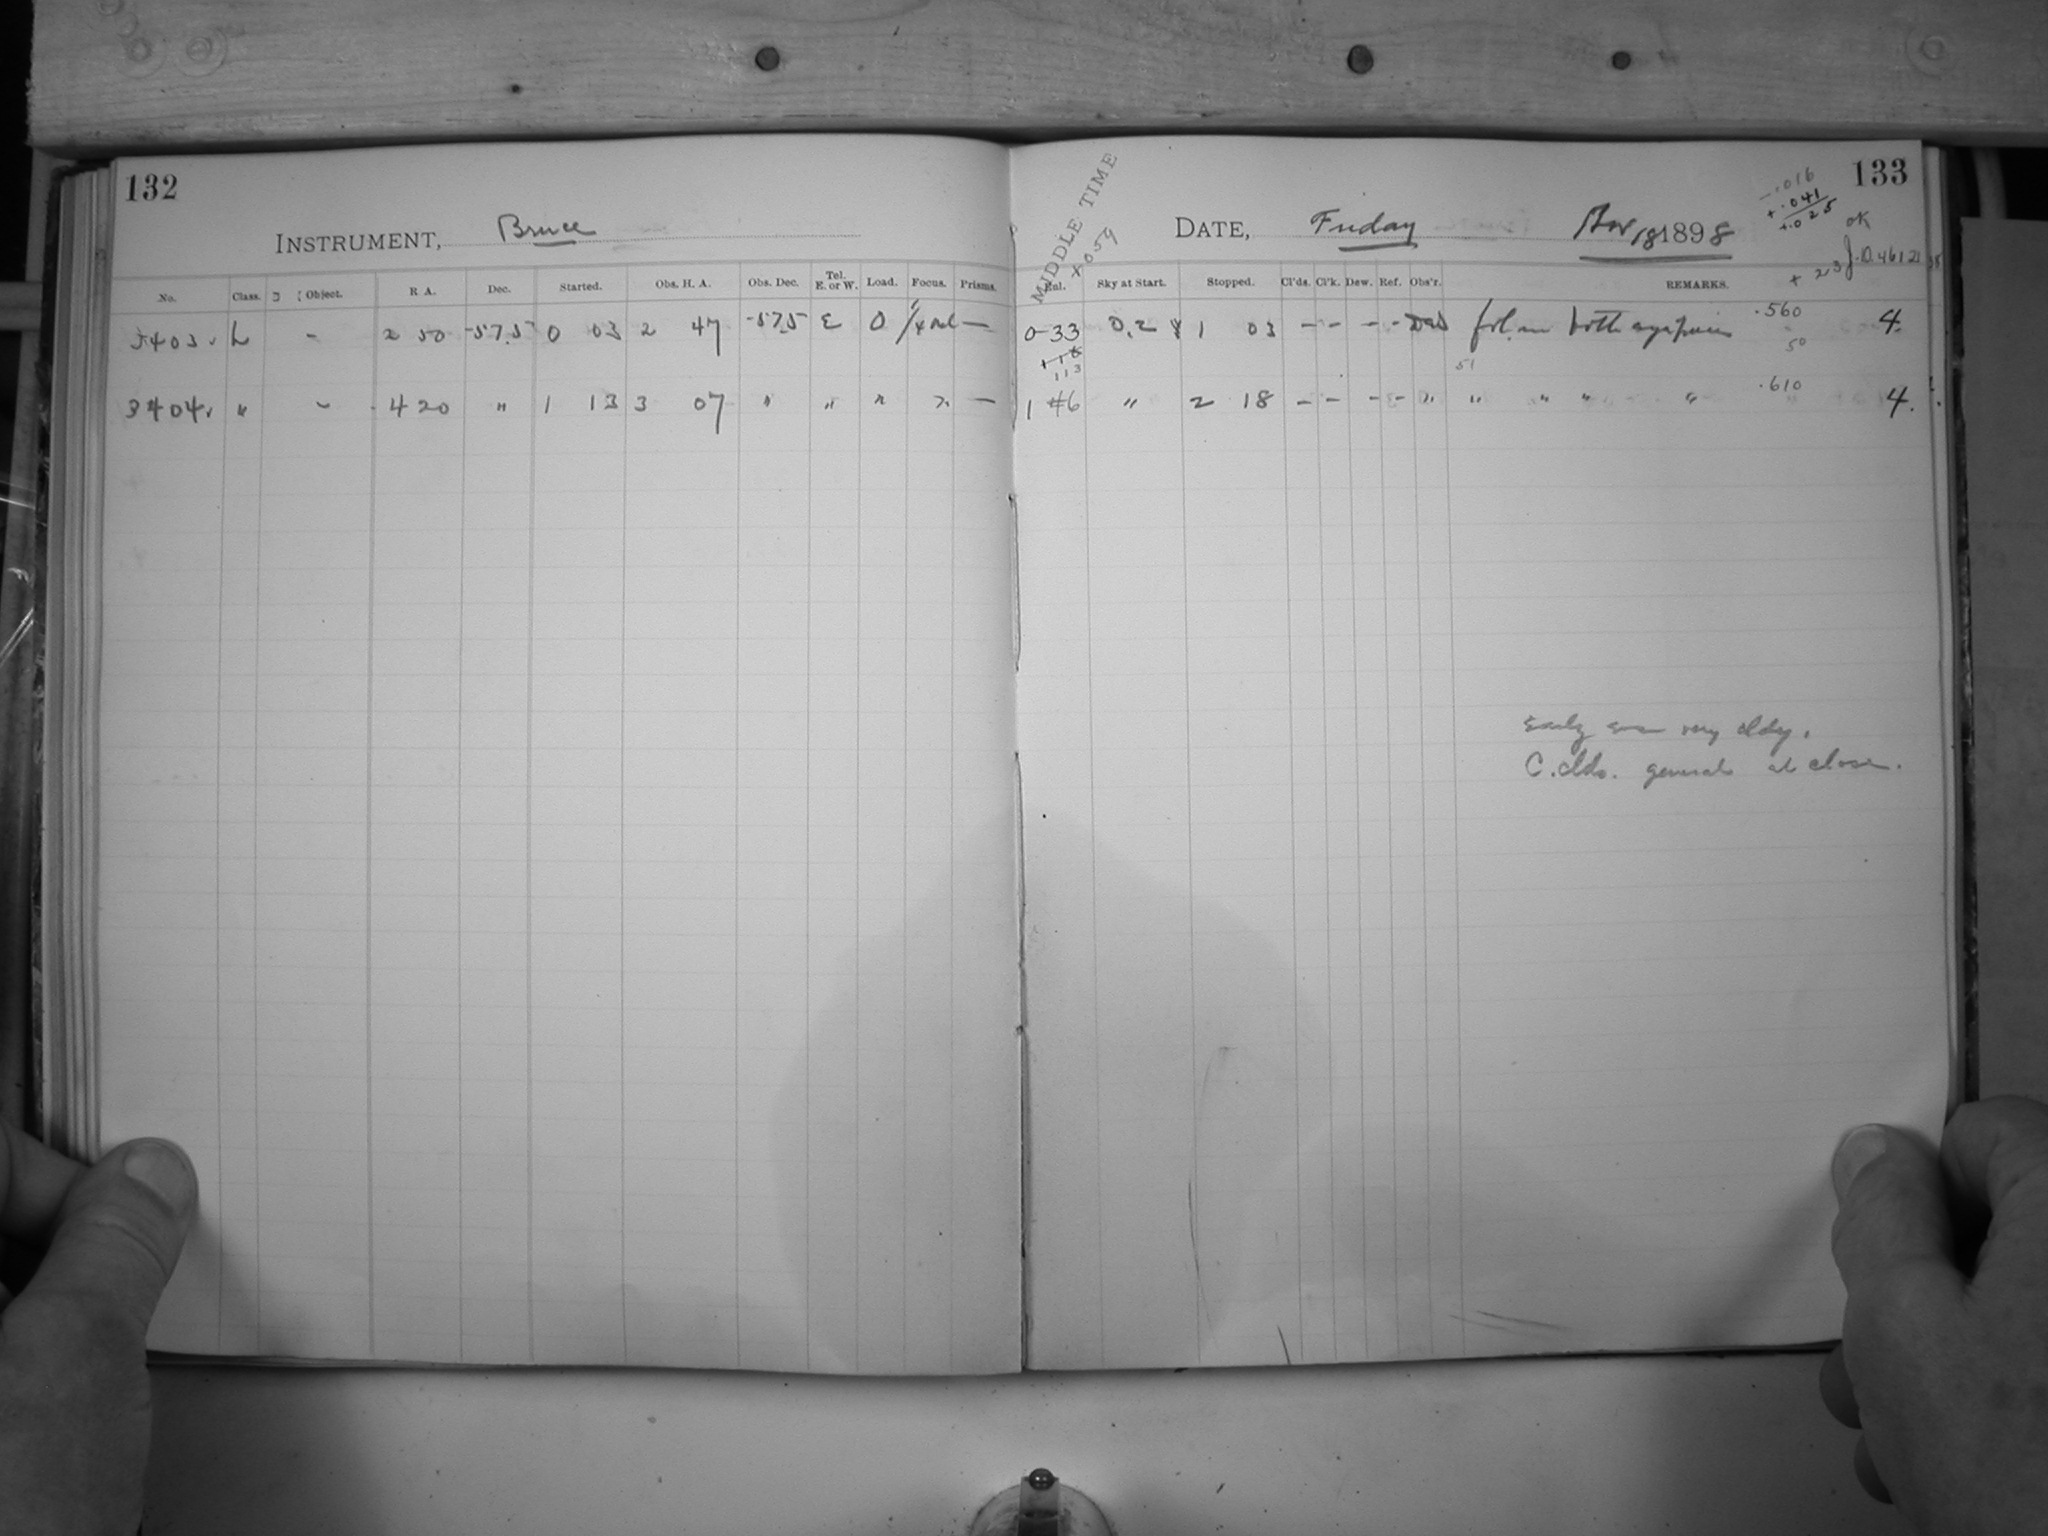 132
INSTRUMENT, Bruce
No. Class. Object. R A. Dec. Started. Obs. H. A. Obs. Dec. Tel. E. or W. Load. Focus. Prisms.
3403 L - 2 50 -57.5 0 03 2 47 -57.5 E 0 —
3404 " - 4 20 " 1 13 3 07 " " " " —
MIDDLE TIME
+059
133
DATE, Friday Nov 18 1898
-.016
+.041
+.025
OK
J.D. 46121
Sky at Start. Stopped. Cl'ds. Cl'k. Dew. Ref. Obs'r. REMARKS.
0-33 0.2 1 03 - - - - both .560 4.
113 51 50
1 46 " 2 18 - - - - " " " " " .610 4.
Early very cldy.
C. clds. general at close.